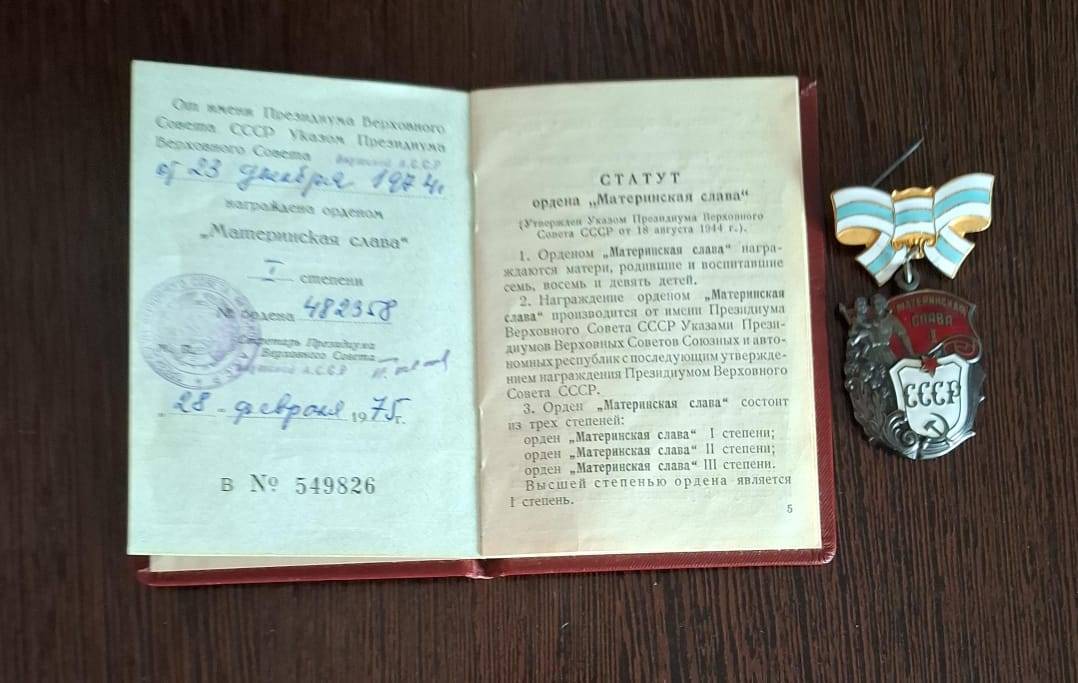 От имени Президиума Верховного
Совета СССР Указом Президиума
Верховного Совета А.С.С.Р
от 23 декабря 1974г.
награждена орденом
„Материнская слава“
I степени
№ ордена 482358
Секретарь Президиума
Верховного Совета
А.С.С.Р
„28 - февраля 1975г.
В № 549826
СТАТУТ
ордена „Материнская слава“
(Утвержден Указом Президиума Верховного
Совета СССР от 18 августа 1944 г.).
1. Орденом „Материнская слава“ награ-
ждаются матери, родившие и воспитавшие
семь, восемь и девять детей.
2. Награждение орденом „Материнская
слава“ производится от имени Президиума
Верховного Совета СССР Указами Прези-
диумов Верховных Советов Союзных и авто-
номных республик с последующим утвержде-
нием награждения Президиумом Верховного
Совета СССР.
3. Орден „Материнская слава“ состоит
из трех степеней:
орден „Материнская слава“ I степени;
орден „Материнская слава“ II степени;
орден „Материнская слава“ III степени.
Высшей степенью ордена является
I степень.
5
МАТЕРИНСКАЯ
СЛАВА
I
СССР